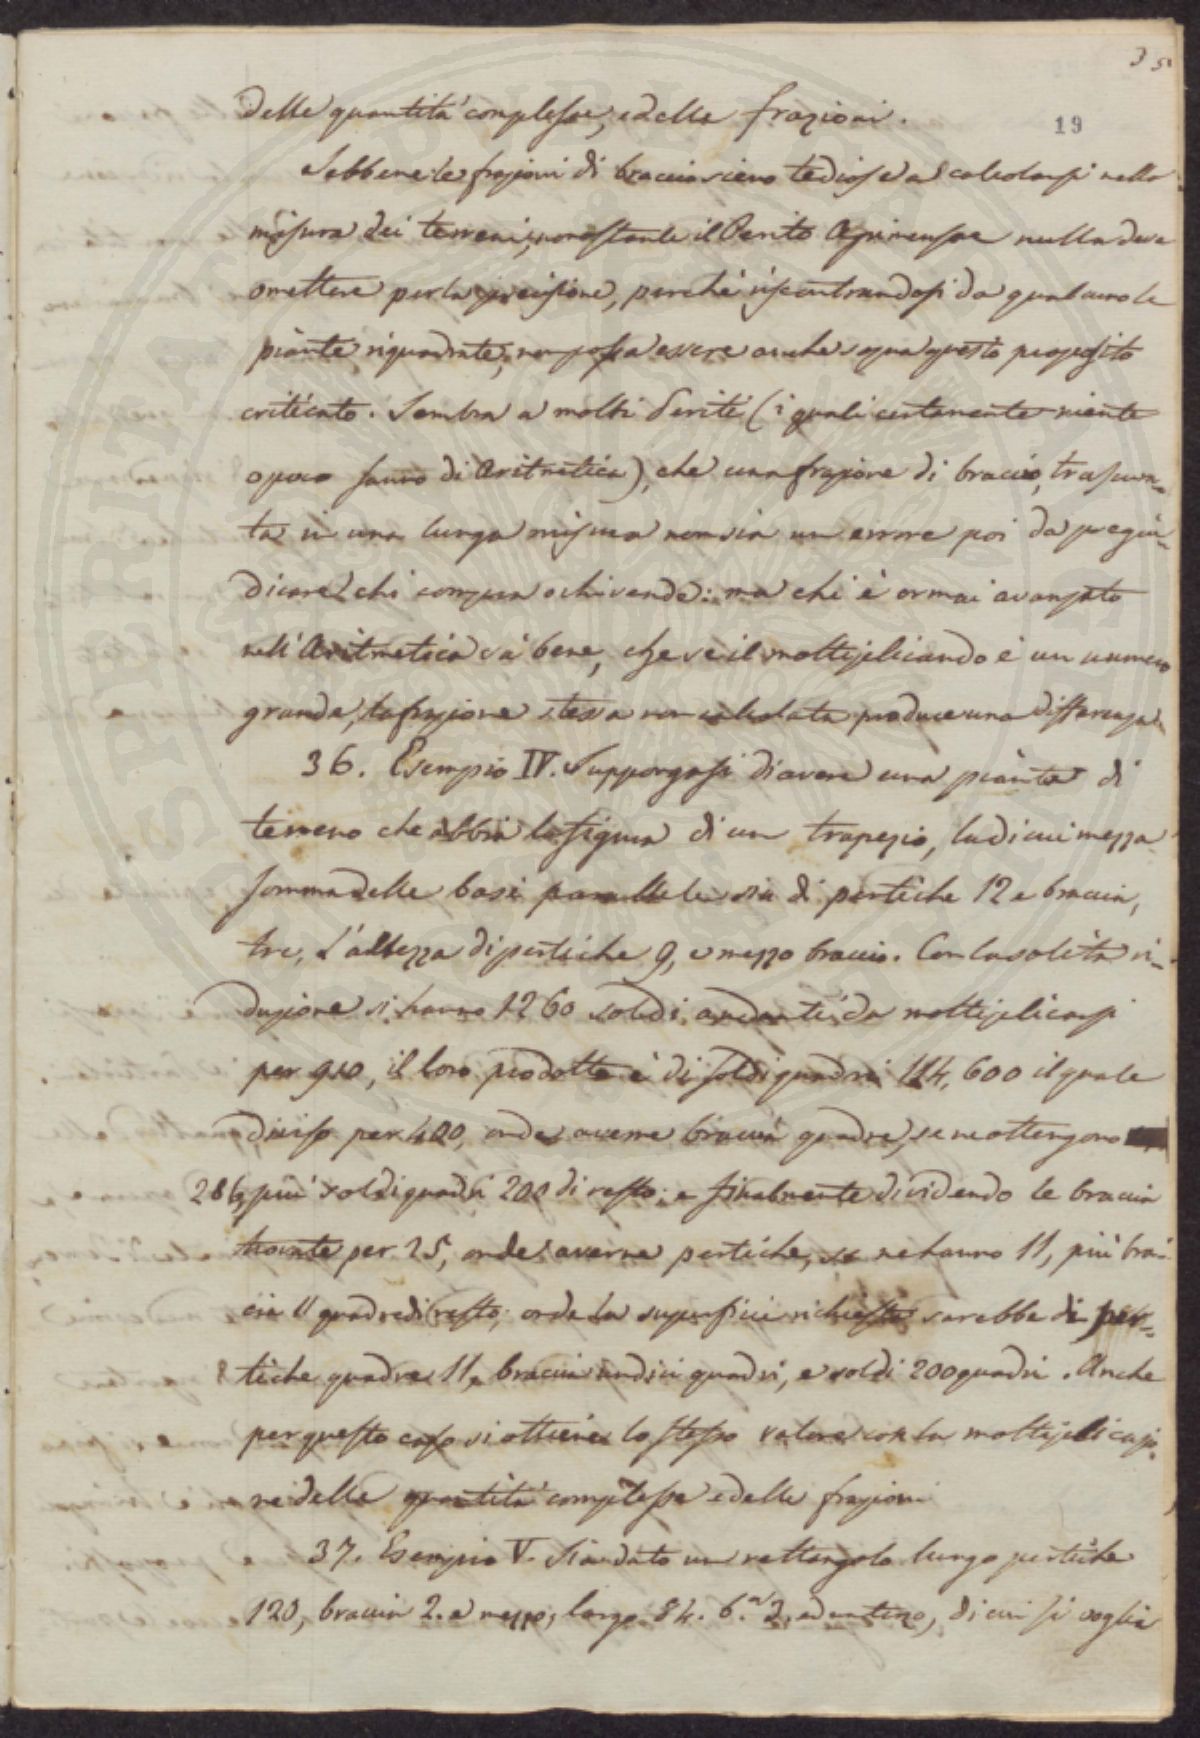 35
19
delle quantità complesse, e delle frazioni.
Sebbene le frazioni di braccia sieno tediose a calcolarsi nella
misura dei terreni, nonostante il Perito Agrimensore nulla deve
omettere per la precisione, perchè riscontrandosi da qualcuno le
piante riquadrate, non possa essere anche sopra questo proposito
criticato. Sembra a molti Periti (i quali certamente niente
o poco sanno di Aritmetica), che una frazione di braccio, trascura=
ta in una lunga misura non sia un errore poi da pregiu=
dicare chi compra o chi vende: ma chi è ormai avanzato
nell'Aritmetica sà bene, che se il moltiplicando è un numero
grande, la frazione stessa non calcolata produce una differenza.
36. Esempio IV. Suppongasi di avere una pianta di
terreno che abbia la figura di un trapezio, la di cui mezza
somma delle basi parallele sia di pertiche 12 e braccia,
tre, l'altezza di pertiche 9, e mezzo braccio. Con la solita ri=
duzione si hanno 1260 soldi andanti da moltiplicarsi
per 910, il loro prodotto è di soldi quadri 114,600 il quale
diviso per 400, onde averne braccia quadre, se ne ottengono
286, più soldi quadri 200 di resto; e finalmente dividendo le braccia
trovate per 25, onde averne pertiche, se ne hanno 11, più brac=
cia 11 quadre di resto; onde la superficie richiesta sarebbe di per=
tiche quadre 11, braccia undici quadri, e soldi 200 quadri. Anche
per questo caso si ottiene lo stesso valore con la moltiplicazio=
ne delle quantità complesse e delle frazioni
37. Esempio V. Sia dato un rettangolo lungo pertiche
120, braccia 2. e mezzo, largo 84. 6.a 2. ed un terzo, di cui si voglia